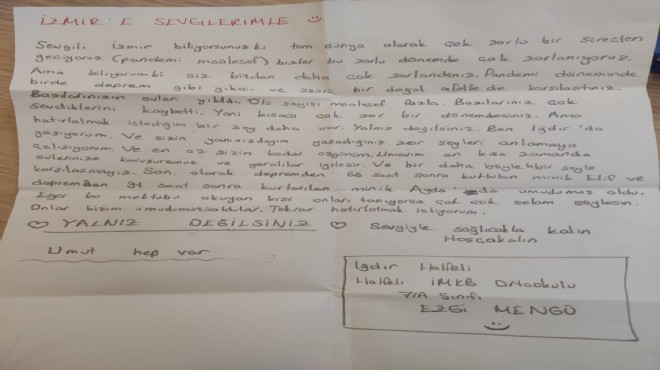 İZMİR'E SEVGİLERİMLE
Sevgili İzmir biliyorsunuz ki tüm dünya olarak çok zorlu bir süreçten
geçiyoruz (pandemi maalesef) bizler bu zorlu dönemde çok zorlanıyoruz.
Ama biliyorum ki siz bizden daha çok zorlandınız. Pandemi döneminde
birde deprem gibi yıkıcı ve bir doğal afetle de karşılaştınız.
Bazılarınızın evleri yıkıldı. Ölü sayısı maalesef fazla. Bazılarınız çok
sevdiklerini kaybetti. Yani kısaca çok zor bir dönemdesiniz. Ama
hatırlatmak istediğim bir şey daha var. Yalnız değilsiniz. Ben Iğdır'da
yaşıyorum. Ve sizin yanınızdayım yaşadığınız zor şeyleri anlamaya
çalışıyorum. Ve en az sizin kadar üzgünüm. Umarım en kısa zamanda
evlerinize kavuşursunuz ve yaralılar iyileşir. Ve bir daha böyle bir şeyle
karşılaşmayız. Son olarak depremden 65 saat sonra kurtulan minik Elif ve
depremden 91 saat sonra kurtarılan minik Ayda da umudumuz oldu.
Eğer bu mektubu okuyan kişi onları tanıyorsa çok çok selam söylesin.
Onlar bizim umudumuz oldular. Tekrar hatırlatmak istiyorum.
YALNIZ DEĞİLSİNİZ
Sevgiyle sağlıcakla kalın
Hoşçakalın
Umut hep var
Iğdır Halfeli
Halfeli İMKB Ortaokulu
7/A Sınıfı
EZGİ MENGÜ